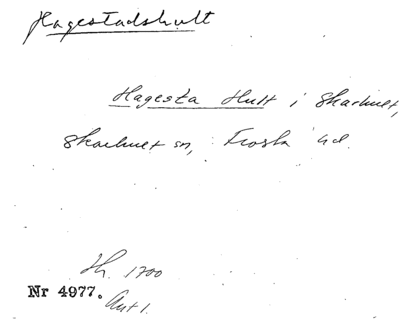 Hagestadshult
Hagesta Hult i Skarhult,
Skarhult sn, Frosta hd.
Jb. 1700
Nr 4977. Ant 1.